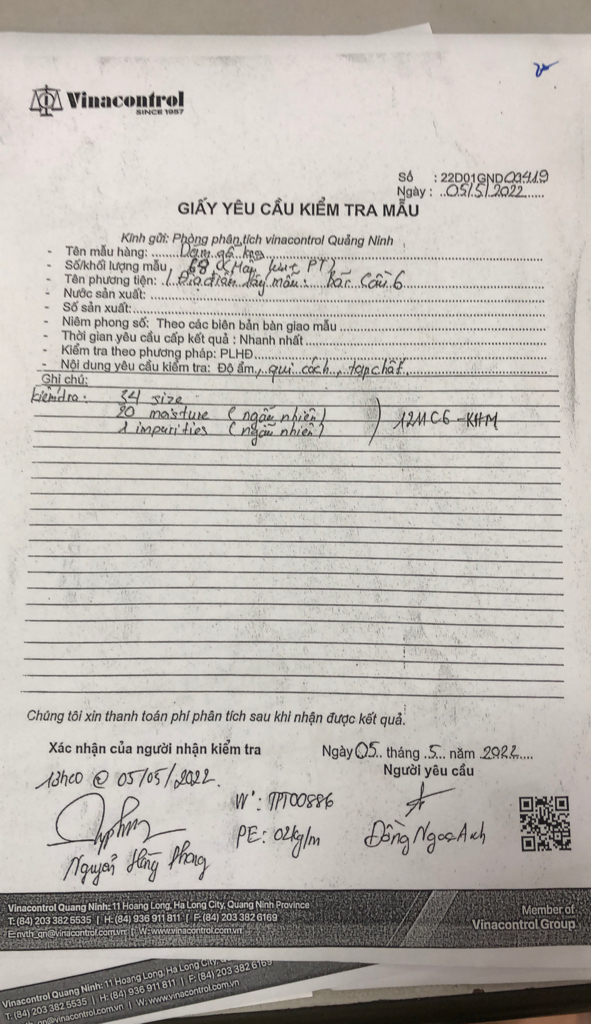 Vinacontrol
SINCE 1957
Số : 22D01GND09419
Ngày : 05/5/2022
GIẤY YÊU CẦU KIỂM TRA MẪU
Kính gửi: Phòng phân tích vinacontrol Quảng Ninh
- Tên mẫu hàng: Dăm gỗ keo
- Số/khối lượng mẫu 68 PT)
- Tên phương tiện: / Địa điểm lấy mẫu: Bắc Cầu 6
- Nước sản xuất:
- Số sản xuất:
- Niêm phong số: Theo các biên bản bàn giao mẫu
- Thời gian yêu cầu cấp kết quả : Nhanh nhất
- Kiểm tra theo phương pháp: PLHĐ
- Nội dung yêu cầu kiểm tra: Độ ẩm, qui cách, tạp chất.
Ghi chú:
kiểm tra: 34 size
20 moisture (ngẫu nhiên) ) 12MC6 - KHM
1 impurities (ngẫu nhiên)
Chúng tôi xin thanh toán phí phân tích sau khi nhận được kết quả.
Xác nhận của người nhận kiểm tra
Ngày 05 tháng 5 năm 2022
Người yêu cầu
13h00 @ 05/05/2022.
Nº: TPT00886
PE: 02kg/m
Đồng Ngọc Anh
Nguyễn Hồng Phong
Vinacontrol Quảng Ninh: 11 Hoang Long, Ha Long City, Quang Ninh Province
T: (84) 203 382 5535 | H: (84) 936 911 811 | F: (84) 203 382 6169
E: nvth_qn@vinacontrol.com.vn | W: www.vinacontrol.com.vn
Member of
Vinacontrol Group
Vinacontrol Quang Ninh: 11 Hoang Long, Ha Long City,
T: (84) 203 382 5535 | H: (84) 936 911 811 | F: (84) 203 382 6169
qn@vinacontrol.com.vn | W: www.vinacontrol.com.vn